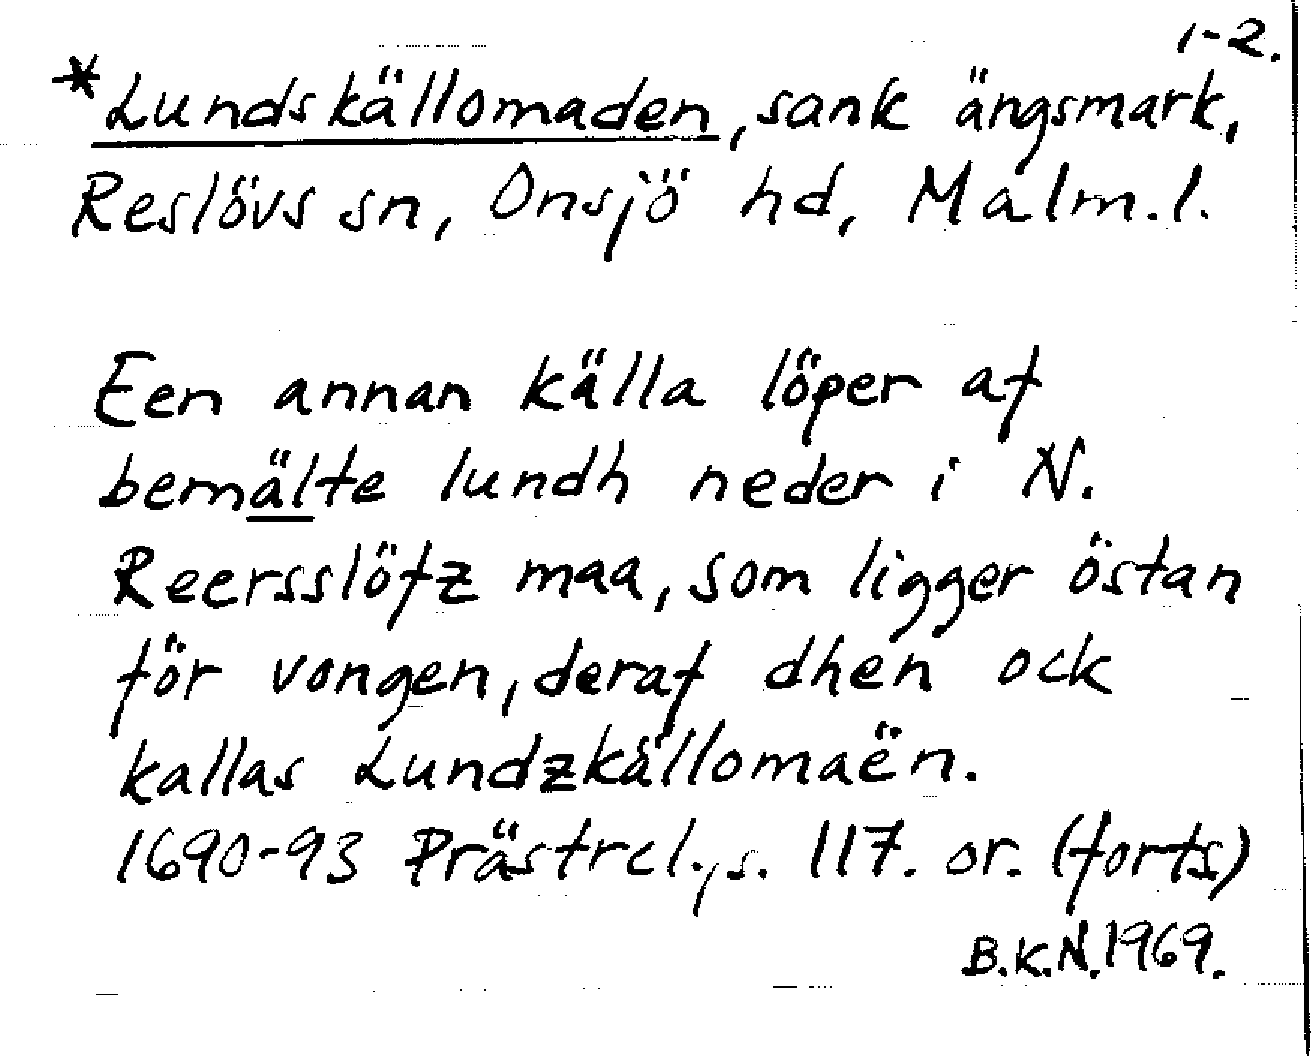 1-2.
*Lundskällomaden, sank ängsmark,
Reslövs sn, Onsjö hd, Malm.l.
Een annan källa löper af
bemälte lundh neder i N.
Reersslöfz maa, som ligger östan
för vongen, deraf dhen ock
kallas Lundzkällomaën.
1690-93 Prästrel., s. 117. or. (forts)
B.K.N. 1969.